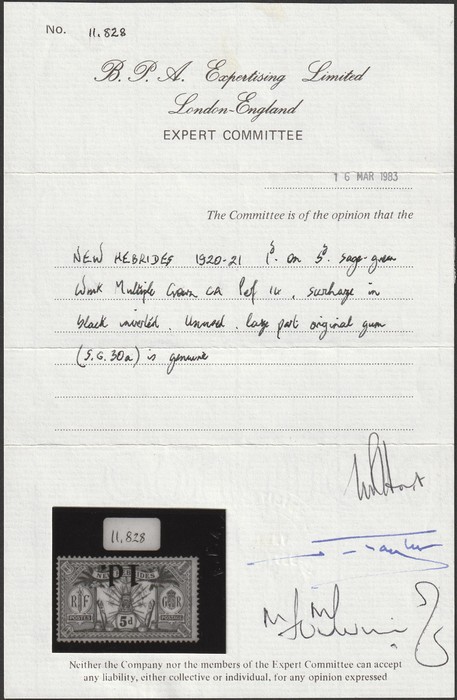 No. 11,828
B. P. A. Expertising Limited
London-England
EXPERT COMMITTEE
16 MAR 1983
The Committee is of the opinion that the
NEW HEBRIDES 1920-21 1d. on 5d. sage-green
Wmk Multiple Crown CA Perf 14, surcharge in
black inverted, Unused, large part original gum
(S.G. 30a) is genuine
11,828
1d.
NEW HEBRIDES
RF
GR
POSTES
5d
POSTAGE
Neither the Company nor the members of the Expert Committee can accept
any liability, either collective or individual, for any opinion expressed